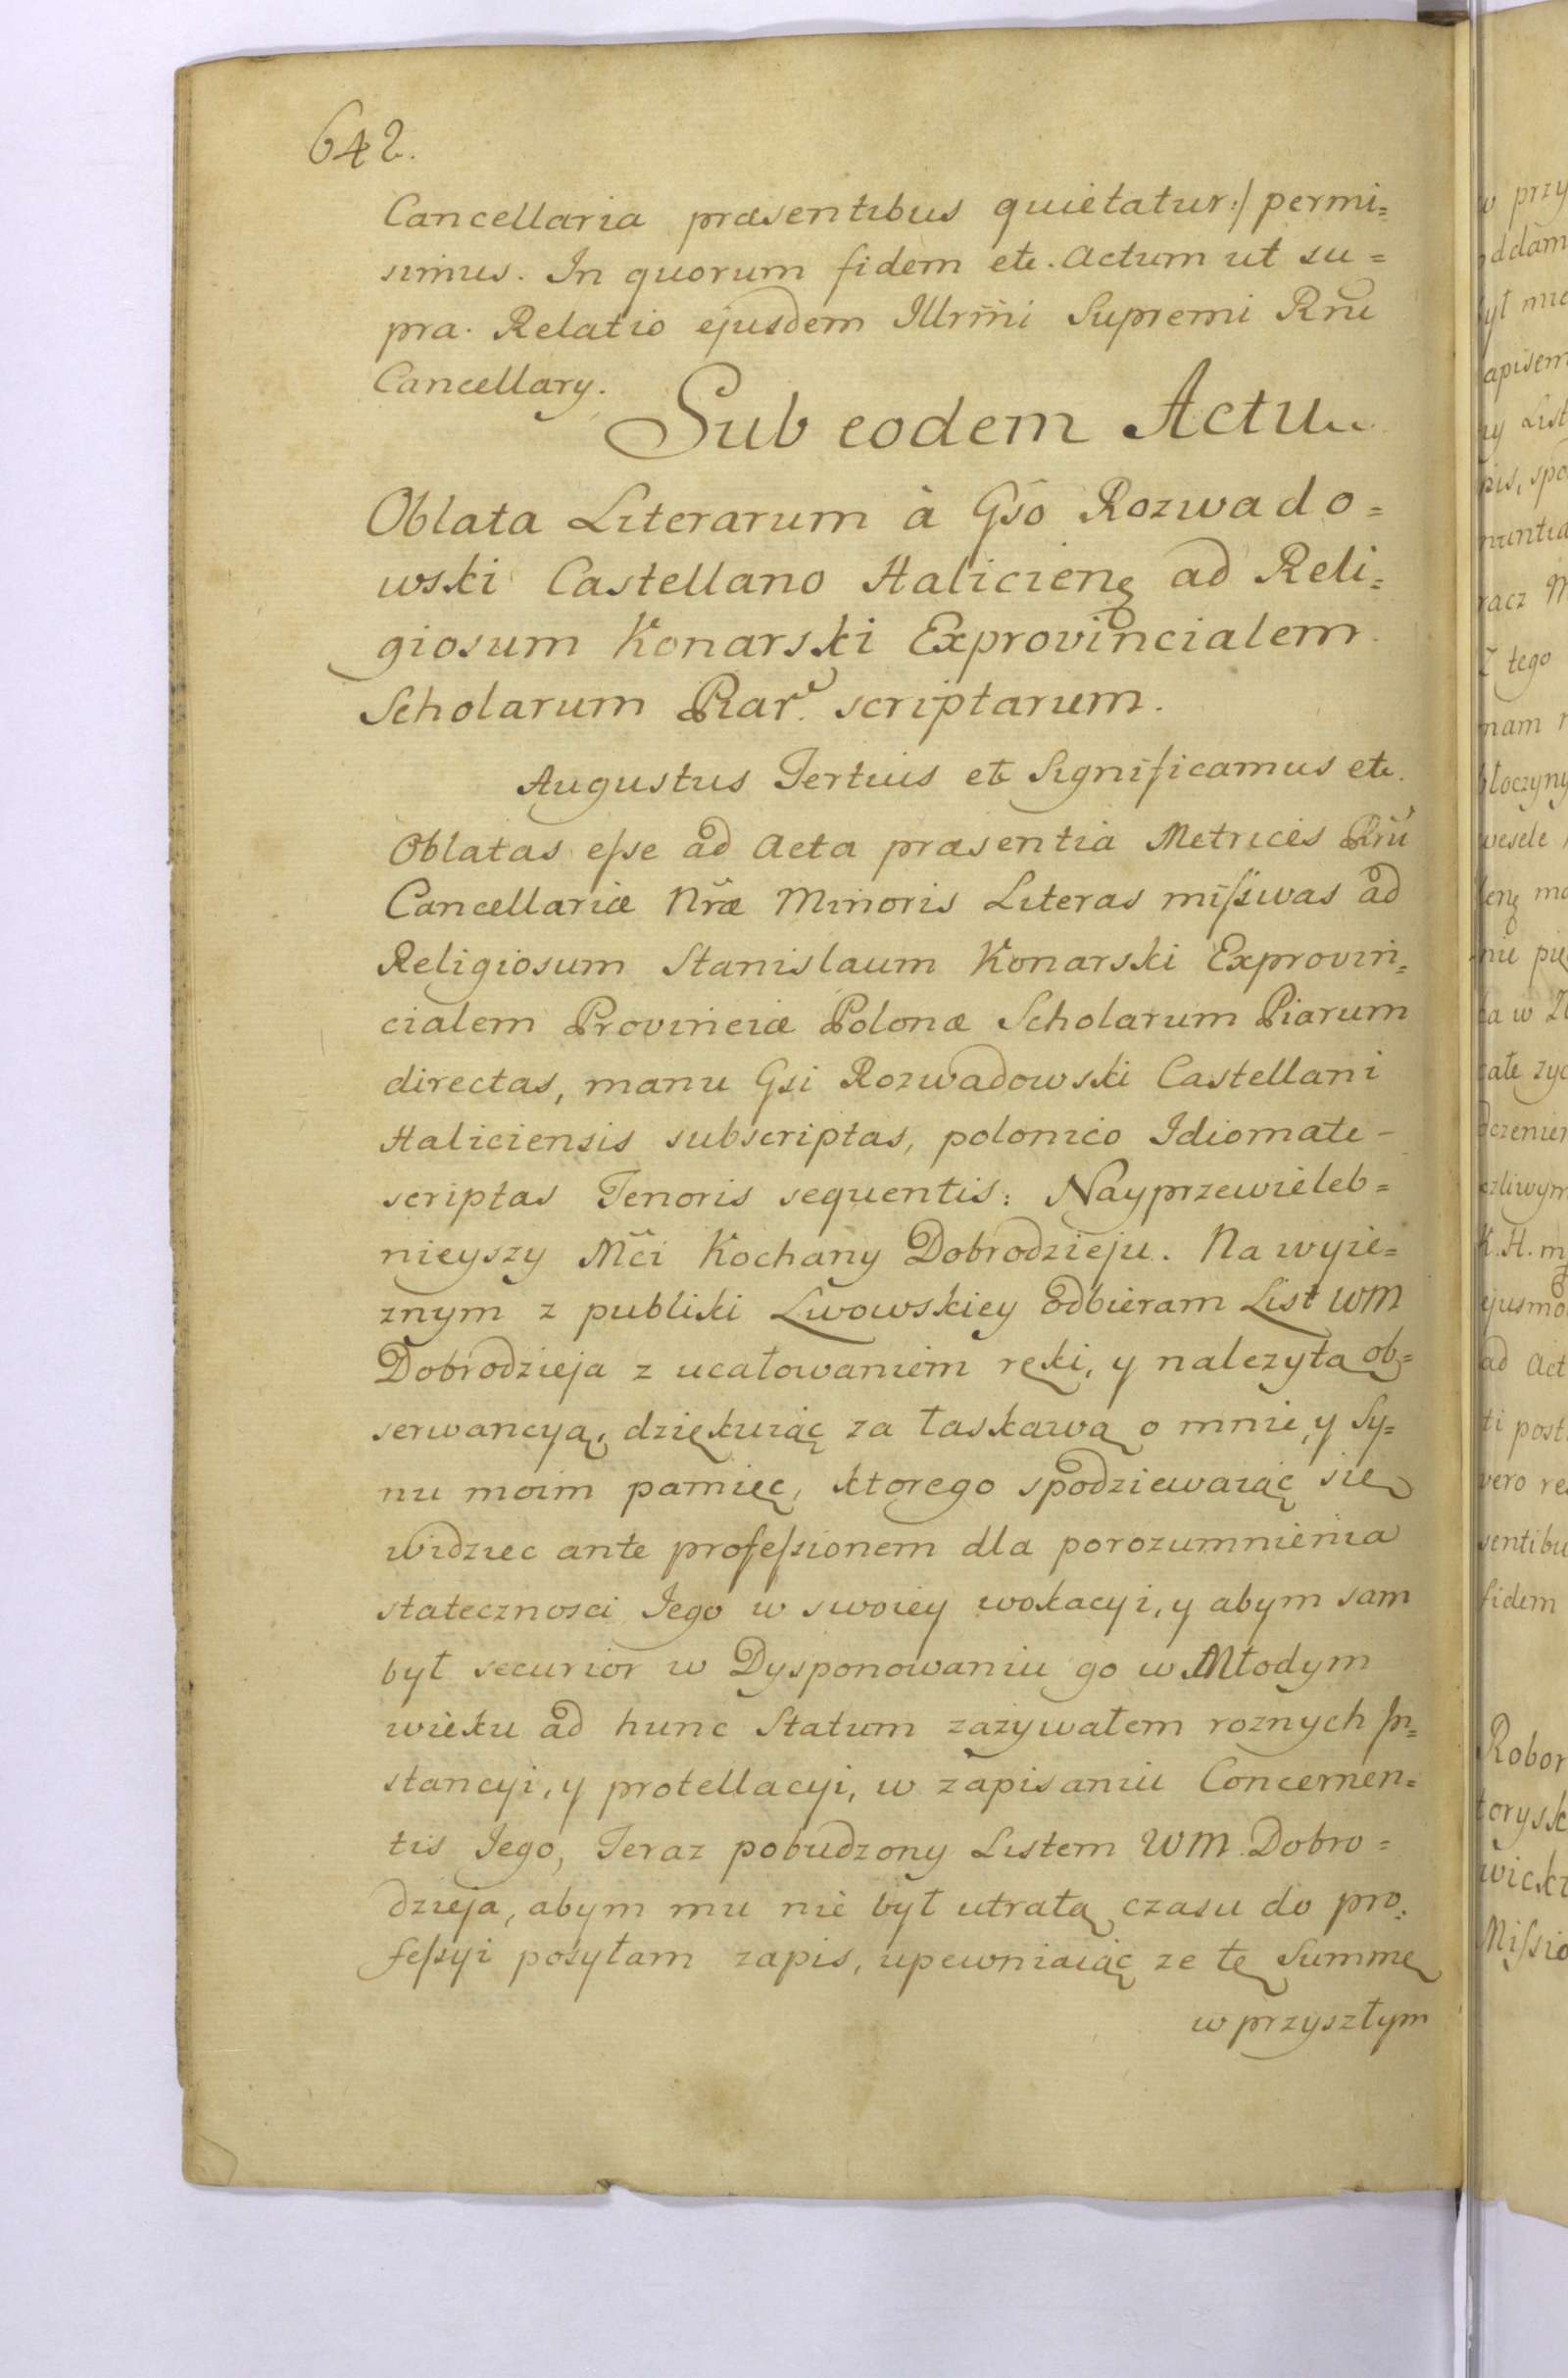 642.
Cancellaria præsentibus quietatur:/ permi=
simus. In quorum fidem etc. Actum ut su=
pra. Relatio ejusdem Illrm̃i Supremi Rñi
Cancellary.
Sub eodem Actu
Oblata Literarum à Gso Rozwado=
wski Castellano Halicieñ ad Reli=
giosum Konarski Exprovincialem
Scholarum Piar. scriptarum.
Augustus Tertius etc Significamus etc.
Oblatas eſse ad Acta præsentia Metrices Rñi
Cancellariæ Nræ Minoris Literas miſsivas ad
Religiosum Stanislaum Konarski Exprovin=
cialem Provinciæ Polonæ Scholarum Piarum
directas, manu Gsi Rozwadowski Castellani
Haliciensis subscriptas, polonico Idiomate -
scriptas Tenoris sequentis: Nayprzewieleb=
nieyszy Mci Kochany Dobrodzieju. Na wyie=
znym z publiki Lwowskiey odbieram List WM
Dobrodzieja z ucałowaniem ręki, y nalezyta ob=
serwancyą, dziękuiąc za łaskawą o mnie, y Sy=
nu moim pamięc, ktorego spodziewaiąc się
widziec ante profeſsionem dla porozumnienia
statecznosci Jego w swoiey wokacyi, y abym sam
był securior w Dysponowaniu go w Młodym
wieku ad hunc Statum zazywałem roznych In=
stancyi, y protellacyi, w zapisaniu Concernen=
tis Jego, Teraz pobudzony Listem WM Dobro=
dzieja, abym mu nie był utratą czasu do pro=
feſsyi posyłam zapis, upewniaiąc ze tę Summę
w przyszłym